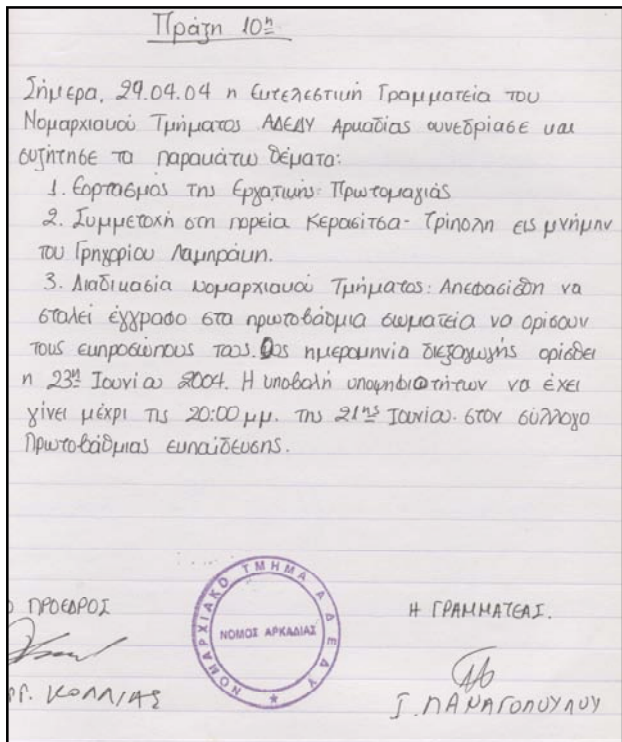 Πράξη 10η
Σήμερα, 29.04.04 η Εκτελεστική Γραμματεία του
Νομαρχιακού Τμήματος ΑΔΕΔΥ Αρκαδίας συνεδρίασε και
συζήτησε τα παρακάτω θέματα:
1. Εορτασμός της Εργατικής Πρωτομαγιάς
2. Συμμετοχή στη πορεία Κερασίτσα- Τρίπολη εις μνήμην
του Γρηγορίου Λαμπράκη.
3. Διαδικασία Νομαρχιακού Τμήματος: Απεφασίσθη να
σταλεί έγγραφο στα πρωτοβάθμια σωματεία να ορίσουν
τους εκπροσώπους τους. Ως ημερομηνία διεξαγωγής ορίσθει
η 23η Ιουνίου 2004. Η υποβολή υποψηφιοτήτων να έχει
γίνει μέχρι τις 20:00 μμ. της 21ης Ιουνίου στον σύλλογο
Πρωτοβάθμιας εκπαίδευσης.
Ο ΠΡΟΕΔΡΟΣ
ΝΟΜΑΡΧΙΑΚΟ ΤΜΗΜΑ ΑΔΕΔΥ
ΝΟΜΟΣ ΑΡΚΑΔΙΑΣ
Η ΓΡΑΜΜΑΤΕΑΣ.
ΚΟΛΛΙΑΣ
Γ. ΠΑΝΑΓΟΠΟΥΛΟΥ